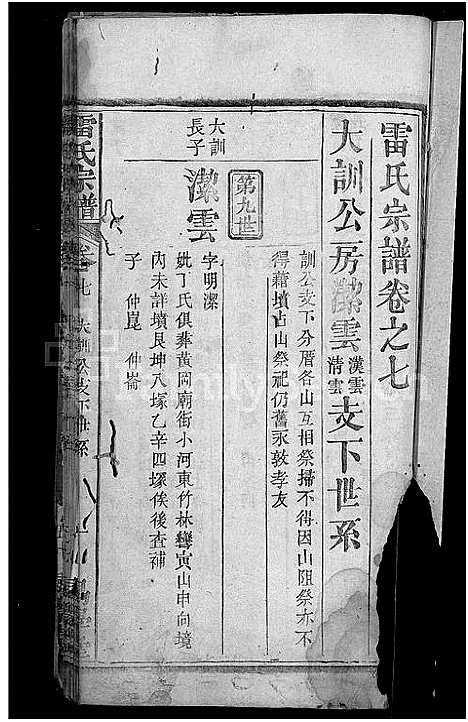 雷氏宗譜卷之七
大訓公房潔雲漢雲清雲支下世系
訓公支下分厝各山互相祭掃不得因山阻祭亦不
得藉墳占山祭祀仍舊永敦孝友
第九世
大訓長子
潔雲
字明潔
妣丁氏俱葬黃岡廟街小河東竹林灣寅山申向境
內未詳墳艮坤八塚乙辛四塚俟後查補
子 仲崑 仲崙
雷氏宗譜
卷七 大訓公支下世系